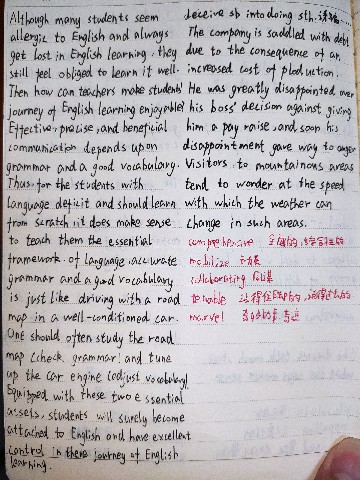 Although many students seem
allergic to English and always
get lost in English learning. they
still feel obliged to learn it well.
Then how can teachers make students'
journey of English learning enjoyable?
Effective, precise, and beneficial
communication depends upon
grammar and a good vocabulary.
Thus, for the students with
language deficit and should learn
from scratch, it does make sense
to teach them the essential
framework. of language, accurate
grammar and a good vocabulary
is just like driving with a road
map in a well-conditioned car.
One should often study the road
map (check grammar) and tune
up the car engine (adjust vocabulary)
Equipped with these two essential
assets, students will surely become
attached to English and have excellent
control in there journey of English
learning.
deceive sb into doing sth.
The company is saddled with debt
due to the consequence of an
increased cost of production.
He was greatly disappointed over
his boss' decision against giving
him a pay raise, and soon his
disappointment gave way to anger
Visitors to mountainous areas
tend to wonder at the speed
with which the weather can
change in such areas.
comprehensive 全面的,综合性的
mobilize
collaborating
tenable
marvel